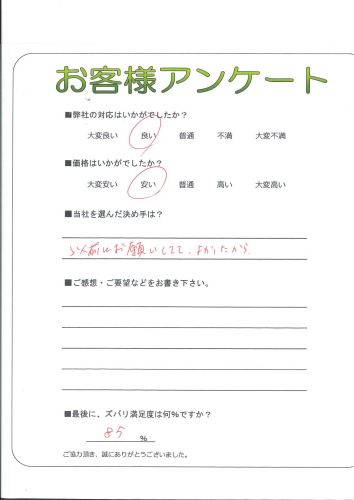 お客様アンケート
■弊社の対応はいかがでしたか？
大変良い 良い 普通 不満 大変不満
■価格はいかがでしたか？
大変安い 安い 普通 高い 大変高い
■当社を選んだ決め手は？
以前にお願いしてて、よかったから
■ご感想・ご要望などをお書き下さい。
■最後に、ズバリ満足度は何%ですか？
85 %
ご協力頂き、誠にありがとうございました。